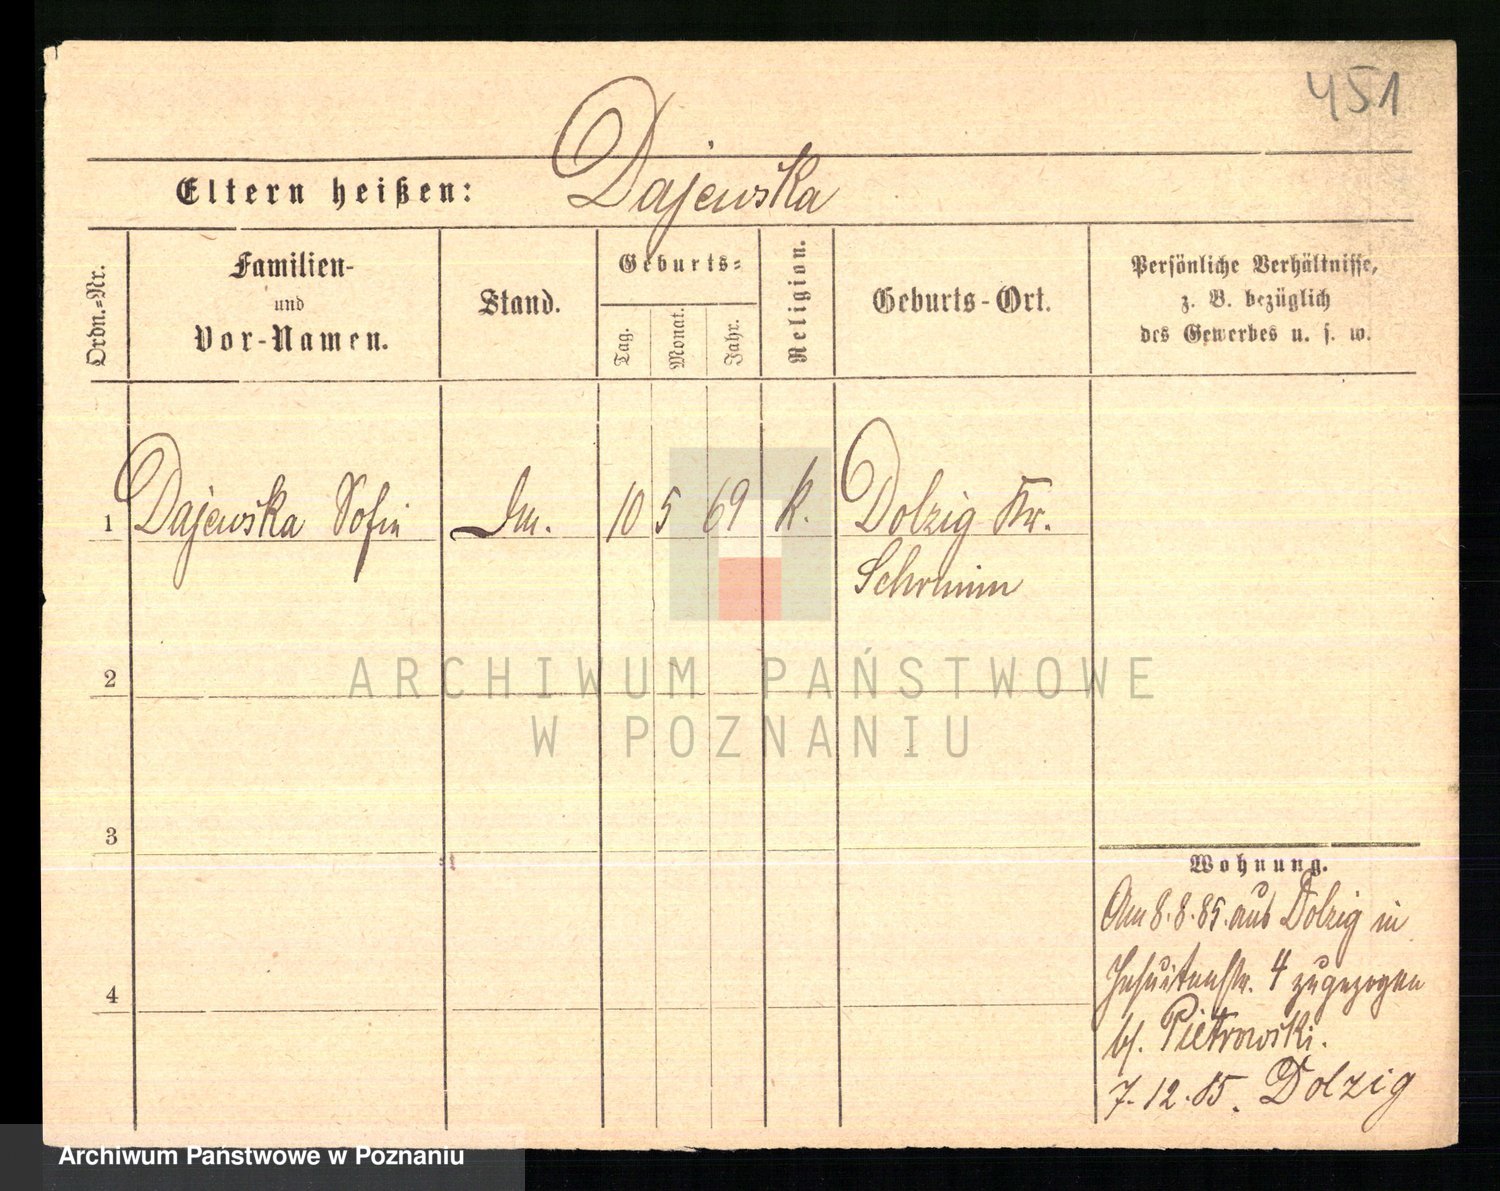 451
Eltern heißen: Dajewska
Ordn.-Nr.
Familien-
und
Vor-Namen.
Stand.
Geburts-
Tag.
Monat.
Jahr.
Religion.
Geburts-Ort.
Persönliche Verhältnisse,
z. B. bezüglich
des Gewerbes u. s. w.
1 Dajewska Sofie 10 5 69 k. Dolzig Kr.
Schrimm
2
3
4
Wohnung.
Am 8.8.85. aus Dolzig in
Jesuitenstr. 4 zugezogen
b/. Pietrowski.
7.12.85. Dolzig
ARCHIWUM PAŃSTWOWE
W POZNANIU
Archiwum Państwowe w Poznaniu